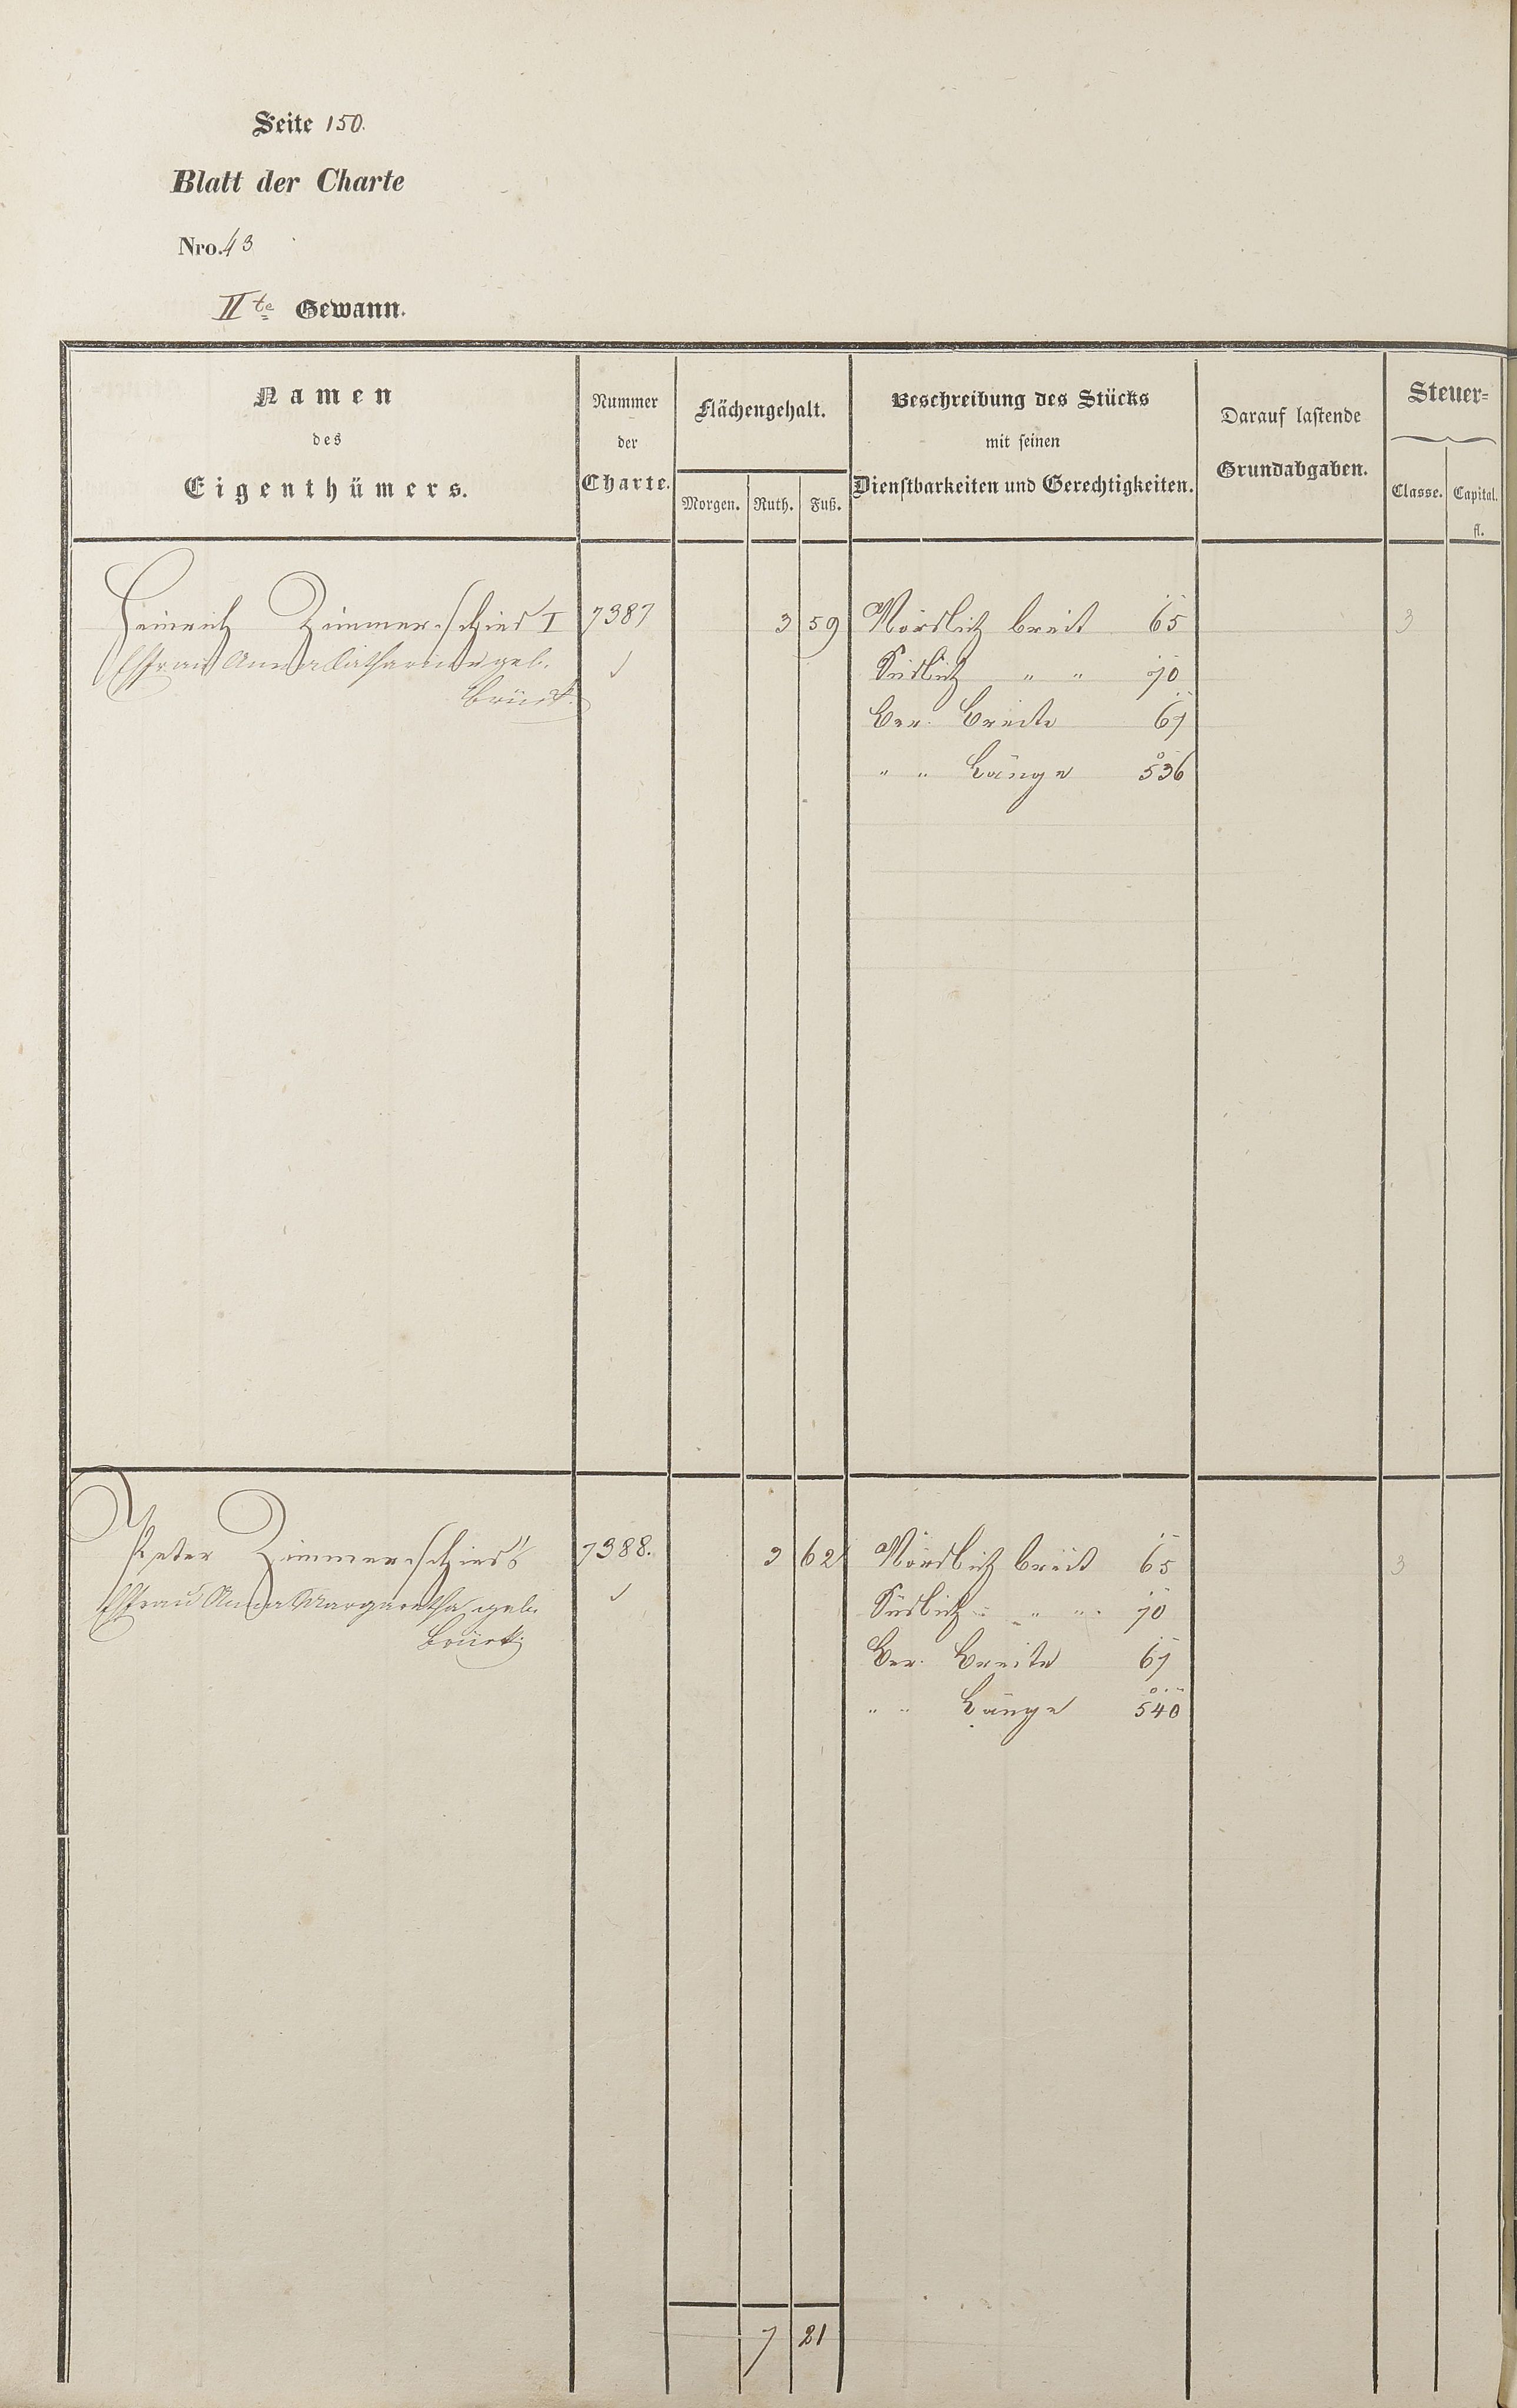 Seite 150.
Blatt der Charte
Nro. 43
IIte Gewann.
Namen
des
Eigenthümers.
Nummer
der
Charte.
Flächengehalt.
Morgen. Ruth. Fuß.
Beschreibung des Stücks
mit seinen
Dienstbarkeiten und Gerechtigkeiten.
Darauf lastende
Grundabgaben.
Steuer=
Classe. Capital.
fl.
Heinrich Zimmerschied I 7387 3 59 Nördlich breit 65 3
Ehfrau Anna Catharine geb. Südlich " " 70
Brück. Ber. Breite 67
" " Länge 536
Peter Zimmerschied's 7388. 3 62 Nördlich breit 65 3
Ehfrau Anna Margaretha geb. Südlich " " 70
Brück. Ber. Breite 67
" " Länge 540
7 21